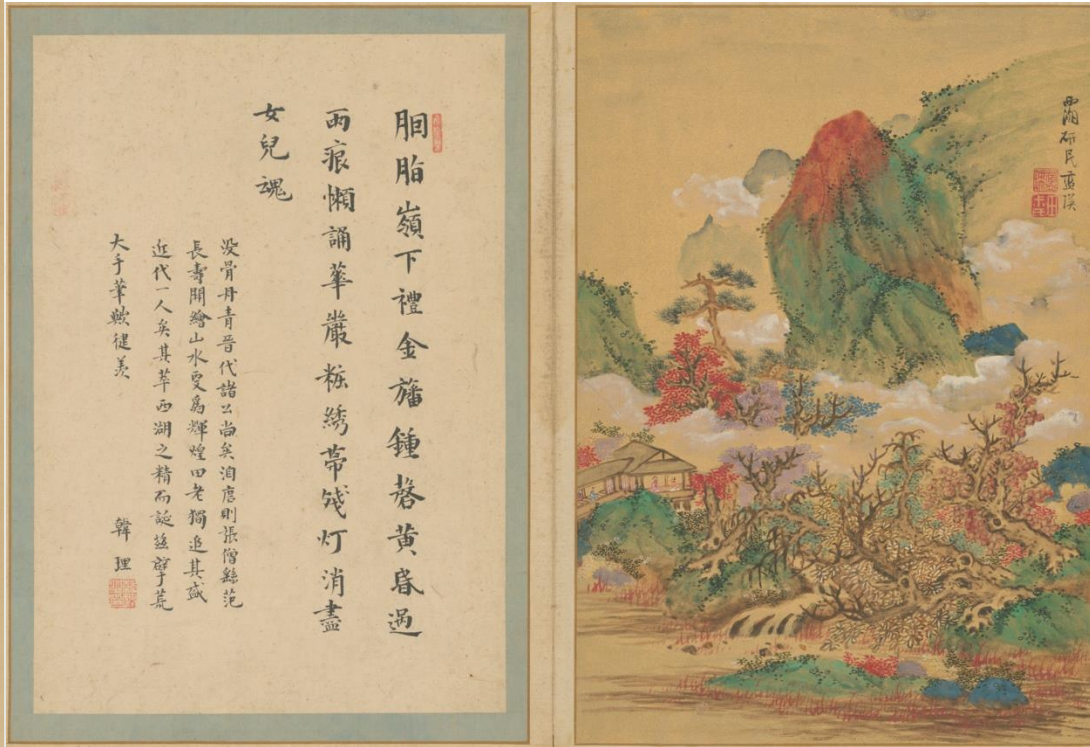 西湖研民藍瑛
胭脂嶺下禮金旛鍾磬黃昏過
雨痕懶誦華嚴粧綉帶残灯消盡
女兒魂
没骨丹青晉代諸公尚矣洎唐則張僧繇范
長壽開繪山水更爲輝煌田老獨追其盛
近代一人矣其萃西湖之精而誕茲擘荒
大手筆歟健羡
韓理